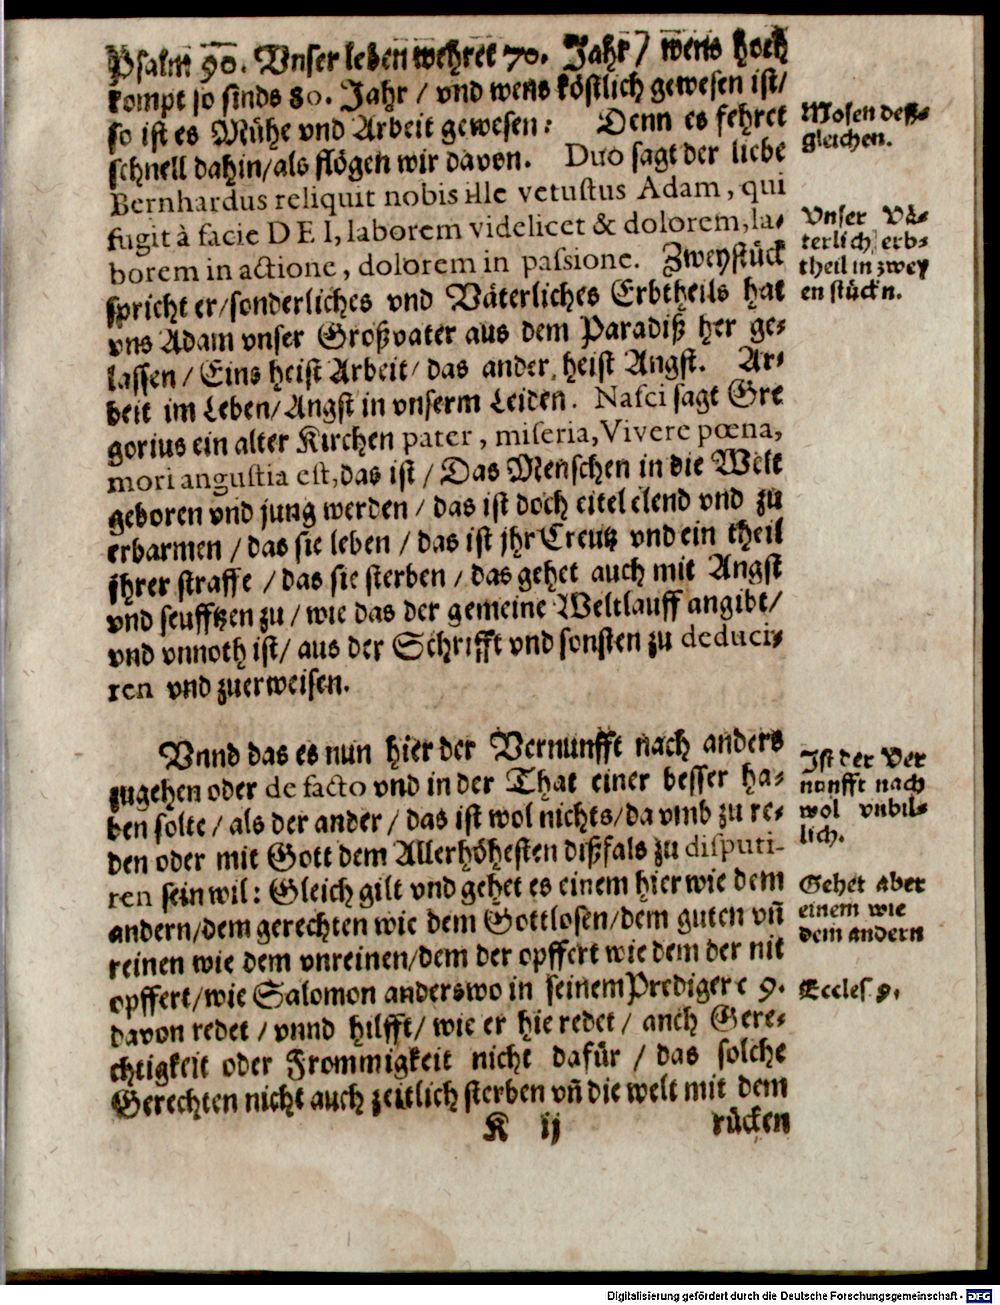 Psalm 90. Vnser leben wehret 70. Jahr / wens hoch
kompt so sinds 80. Jahr / vnd wens köstlich gewesen ist/
so ist es Mühe vnd Arbeit gewesen: Denn es fehret
schnell dahin/als flögen wir davon. Duo sagt der liebe
Bernhardus reliquit nobis ille vetustus Adam, qui
fugit à facie DEI, laborem videlicet & dolorem, la-
borem in actione, dolorem in passione. Zwey stück
spricht er/sonderliches vnd Väterliches Erbtheils hat
vns Adam vnser Großvater aus dem Paradiß her ge-
lassen / Eins heist Arbeit/ das ander, heist Angst. Ar-
beit im Leben/Angst in vnserm Leiden. Nasci sagt Gre
gorius ein alter Kirchen pater, miseria, Vivere pœna,
mori angustia est, das ist / Das Menschen in die Welt
geboren vnd jung werden / das ist doch eitel elend vnd zu
erbarmen / das sie leben / das ist jhr Creutz vnd ein theil
jhrer straffe / das sie sterben / das gehet auch mit Angst
vnd seufftzen zu / wie das der gemeine Weltlauff angibt/
vnd vnnoth ist/ aus der Schrifft vnd sonsten zu deduci-
ren vnd zuerweisen.
Vnnd das es nun hier der Vernunfft nach anders
zugehen oder de facto vnd in der That einer besser ha-
ben solte / als der ander / das ist wol nichts/da vmb zu re-
den oder mit Gott dem Allerhöhesten dißfals zu disputi-
ren sein wil: Gleich gilt vnd gehet es einem hier wie dem
andern/dem gerechten wie dem Gottlosen/dem guten vn̄
reinen wie dem vnreinen/dem der opffert wie dem der nit
opffert/wie Salomon anderswo in seinem Prediger c 9.
davon redet / vnnd hilfft/ wie er hie redet / anch Gere-
chtigkeit oder Frommigkeit nicht dafür / das solche
Gerechten nicht auch zeitlich sterben vn̄ die welt mit dem
K ij rücken
Mosen deß-
gleichen.
Vnser Vä-
terlich erb-
theil in zwey
en stückn.
Ist der Ver
nunfft nach
wol vnbil-
lich.
Gehet aber
einem wie
dem andern
Eccles 9.
Digitalisierung gefördert durch die Deutsche Forschungsgemeinschaft - DFG